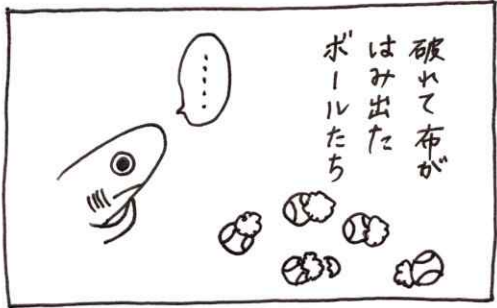 破れて布が
はみ出た
ボールたち
……